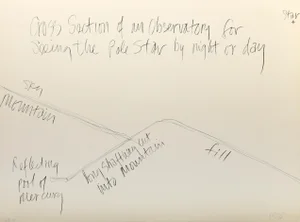 Star
Cross Section of an Observatory for
Seeing the Pole Star by night or day
Sky
Mountain
Long shaftway cut
into mountain
fill
Reflecting
pool of
mercury